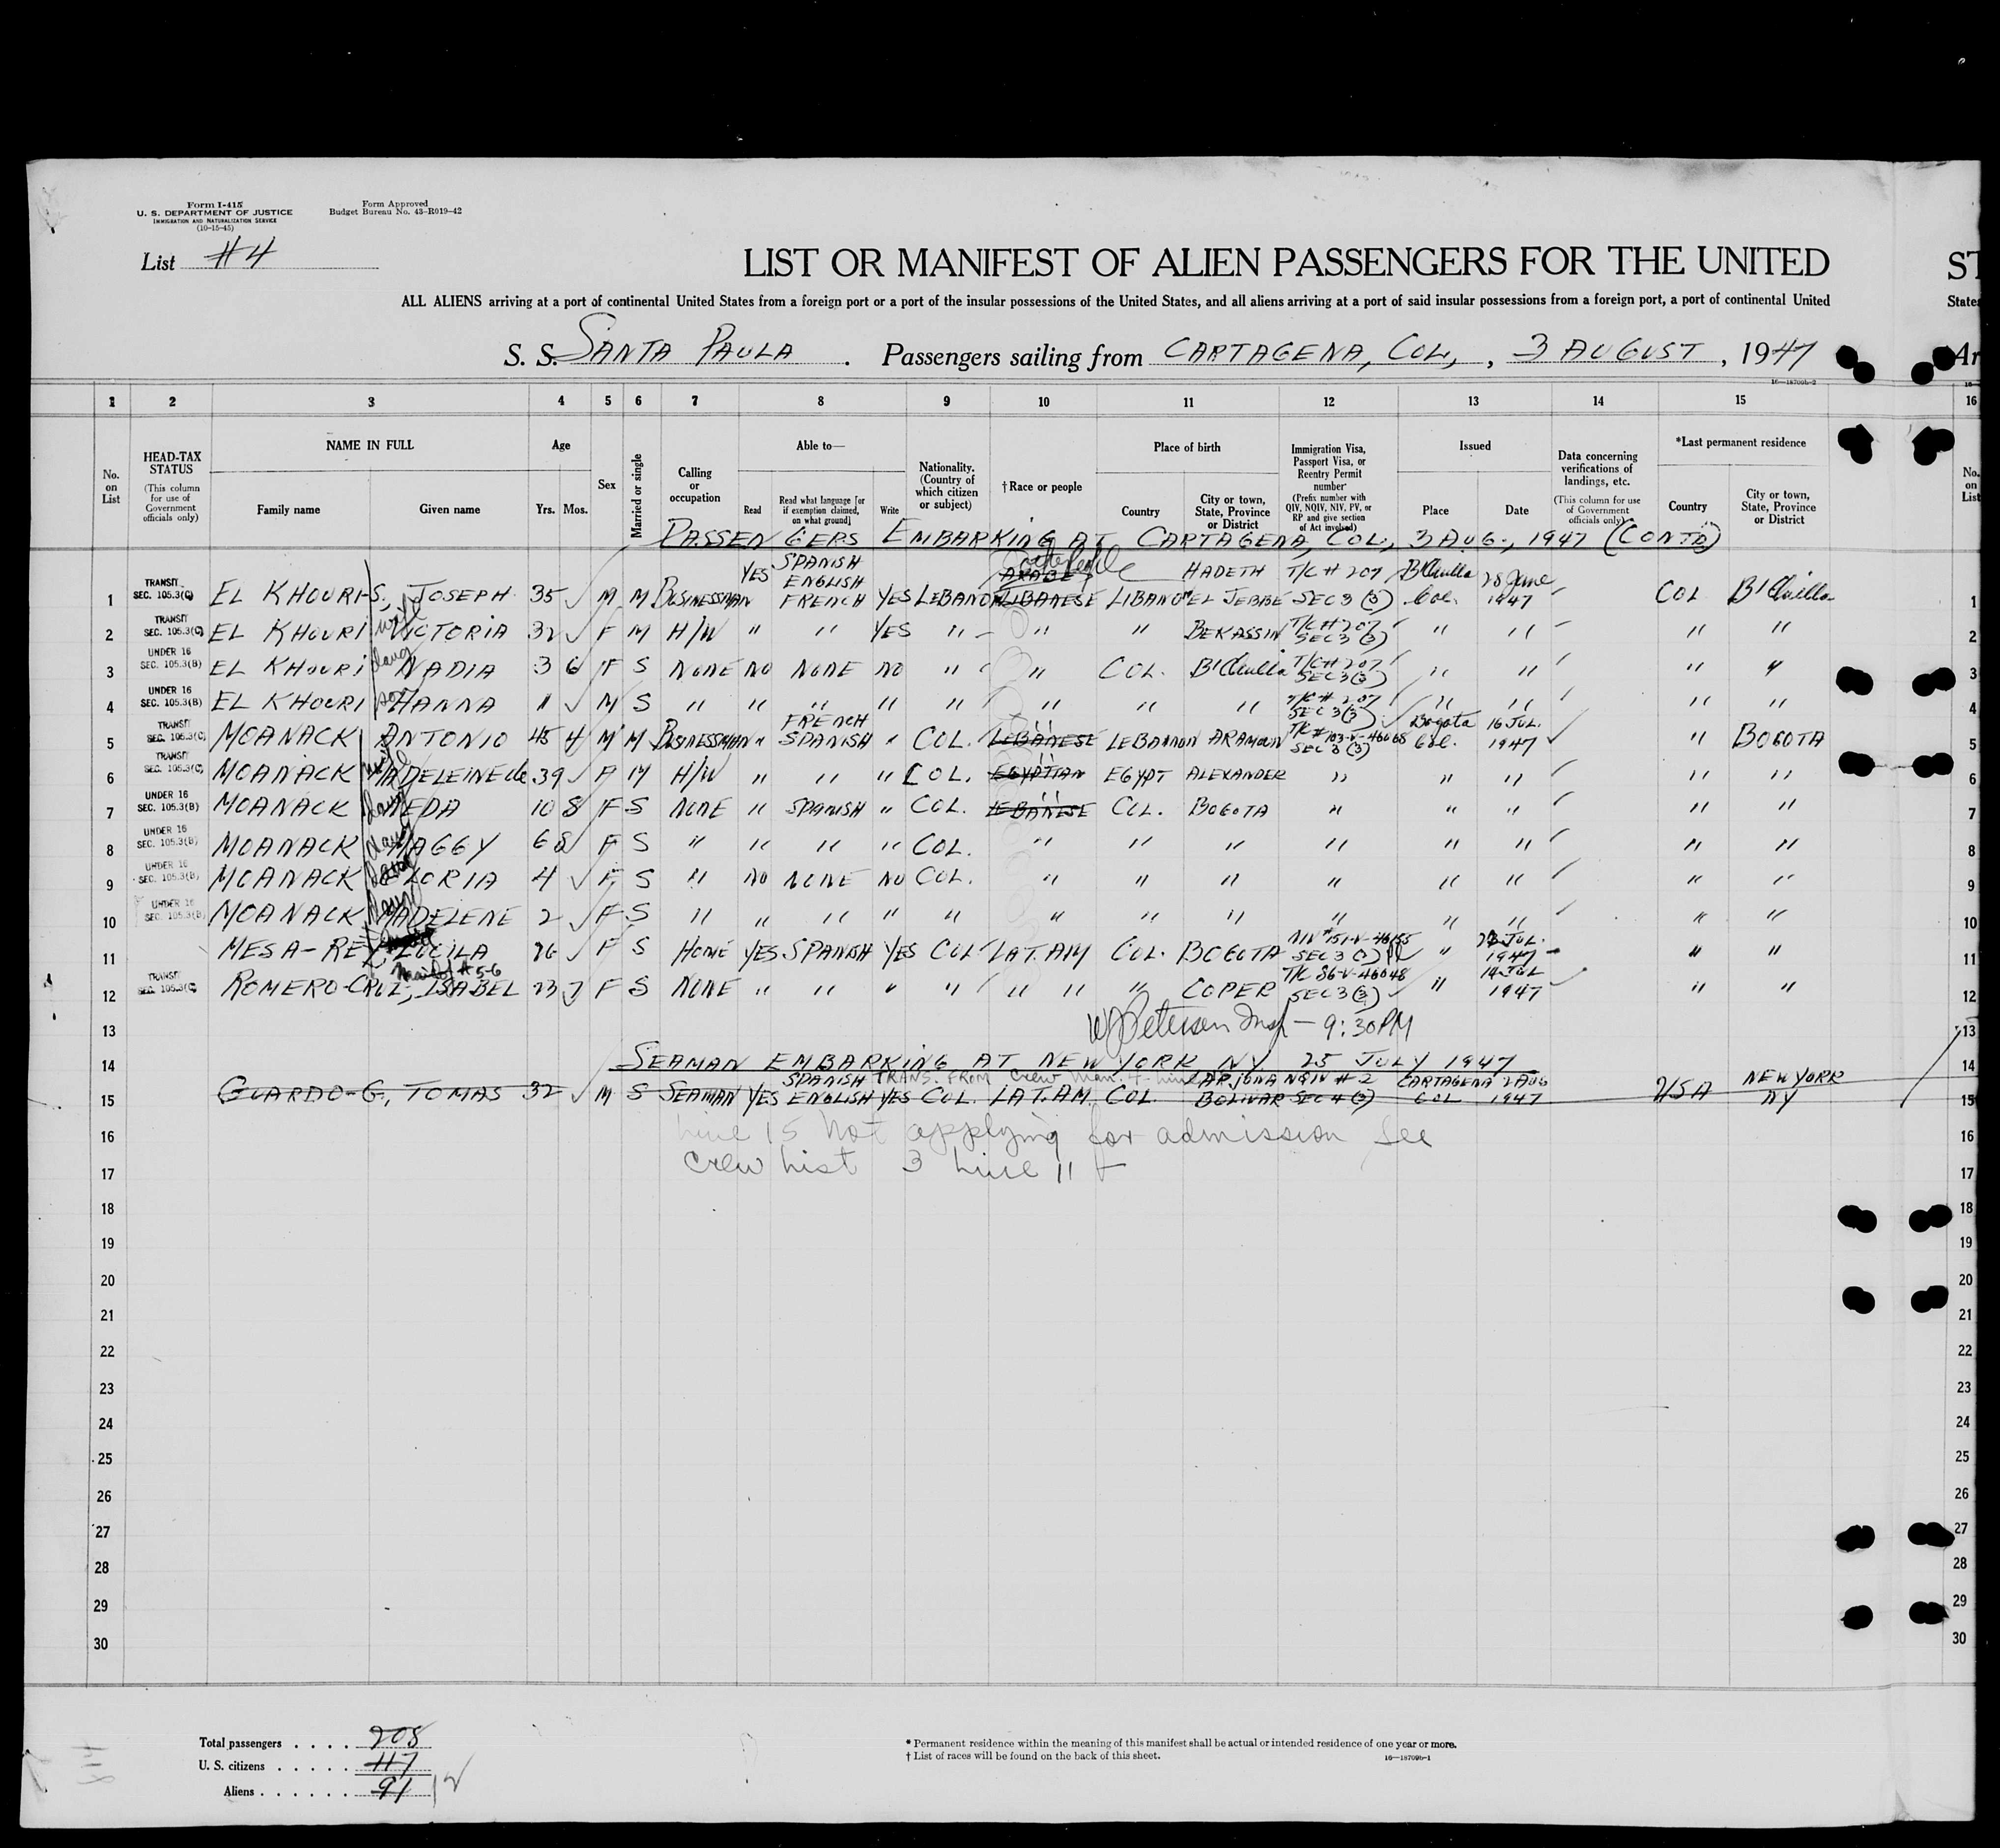 Form I-415
U. S. DEPARTMENT OF JUSTICE
IMMIGRATION AND NATURALIZATION SERVICE
(10-15-45)
Form Approved
Budget Bureau No. 43-R019-42
List #4
LIST OR MANIFEST OF ALIEN PASSENGERS FOR THE UNITED
ST
ALL ALIENS arriving at a port of continental United States from a foreign port or a port of the insular possessions of the United States, and all aliens arriving at a port of said insular possessions from a foreign port, a port of continental United
States
S. S. SANTA PAULA . Passengers sailing from CARTAGENA, COL, , 3 AUGUST , 1947
Ar
16—18709b-2
1 2 3 4 5 6 7 8 9 10 11 12 13 14 15 16
No. on List
HEAD-TAX STATUS (This column for use of Government officials only)
NAME IN FULL Family name Given name
Age Yrs. Mos.
Sex
Married or single
Calling or occupation
Able to— Read Read what language [or if exemption claimed, on what ground] Write
Nationality. (Country of which citizen or subject)
†Race or people
Place of birth Country City or town, State, Province or District
Immigration Visa, Passport Visa, or Reentry Permit number (Prefix number with QIV, NQIV, NIV, PV, or RP and give section of Act involved)
Issued Place Date
Data concerning verifications of landings, etc. (This column for use of Government officials only)
*Last permanent residence Country City or town, State, Province or District
No. on List
PASSENGERS EMBARKING AT CARTAGENA, COL, 3 AUG., 1947 (CONTD)
1 TRANSIT SEC. 105.3(C) EL KHOURI-S, JOSEPH 35 M M BUSINESSMAN YES SPANISH ENGLISH FRENCH YES LEBANON ARABE LIBANESE LIBANO HADETH EL JEBBE T/C # 207 SEC 3 (3) B/Quilla Col. 28 June 1947 COL B/Quilla 1
2 TRANSIT SEC. 105.3(C) EL KHOURI wife VICTORIA 32 F M H/W " " YES " " " BEKASSIN T/C # 207 SEC 3 (3) " " " " 2
3 UNDER 16 SEC. 105.3(B) EL KHOURI daug NADIA 3 6 F S NONE NO NONE NO " " COL. B/Quilla T/C # 207 SEC 3 (3) " " " " 3
4 UNDER 16 SEC. 105.3(B) EL KHOURI son HANNA 1 M S " " " " " " " " T/C # 207 SEC 3 (3) " " " " 4
5 TRANSIT SEC. 105.3(C) MOANACK ANTONIO 45 4 M M BUSINESSMAN " FRENCH SPANISH " COL. LEBANESE " LEBANON ARAMOUN T/C # 103-V-46068 SEC 3 (3) Bogota Col. 16 JUL. 1947 " BOGOTA 5
6 TRANSIT SEC. 105.3(C) MOANACK wife MADELEINE de 39 F M H/W " " " COL. EGYPTIAN " EGYPT ALEXANDER " " " " " 6
7 UNDER 16 SEC. 105.3(B) MOANACK daug NEDA 10 8 F S NONE " SPANISH " COL. LEBANESE " COL. BOGOTA " " " " " 7
8 UNDER 16 SEC. 105.3(B) MOANACK daug MAGGY 6 8 F S " " " " COL. " " " " " " " " 8
9 UNDER 16 SEC. 105.3(B) MOANACK daug GLORIA 4 F S " NO NONE NO COL. " " " " " " " " 9
10 UNDER 16 SEC. 105.3(B) MOANACK daug MADELENE 2 F S " " " " " " " " " " " " " 10
11 MESA-REY, LUCILA 26 F S HOME YES SPANISH YES COL LAT. AM COL. BOGOTA NIV # 151-V-46155 SEC 3 " 23 JUL. 1947 " " 11
12 TRANSIT SEC. 105.3(C) ROMERO-CRUZ, ISABEL maid of #5-6 23 F S NONE " " " " " " " COPER T/C 86-V-46048 SEC 3 (3) " 14 JUL 1947 " " 12
13 W J Petersen Insp — 9:30 PM 13
14 SEAMAN EMBARKING AT NEW YORK NY. 25 JULY 1947 14
TRANS. FROM Crew Man. 4 - line
15 GUARDO-G, TOMAS 32 M S SEAMAN YES SPANISH ENGLISH YES COL. LAT. AM. COL. ARJONA BOLIVAR NQIV # 2 SEC 4 (3) CARTAGENA COL 2 AUG 1947 USA NEW YORK NY 15
16 Line 15 Not applying for admission See 16
17 Crew List 3 Line 11 17
18 18
19 19
20 20
21 21
22 22
23 23
24 24
25 25
26 26
27 27
28 28
29 29
30 30
Total passengers . . . . 208
U. S. citizens . . . . . 117
Aliens . . . . . . 91 12
* Permanent residence within the meaning of this manifest shall be actual or intended residence of one year or more.
† List of races will be found on the back of this sheet. 16—18709b-1